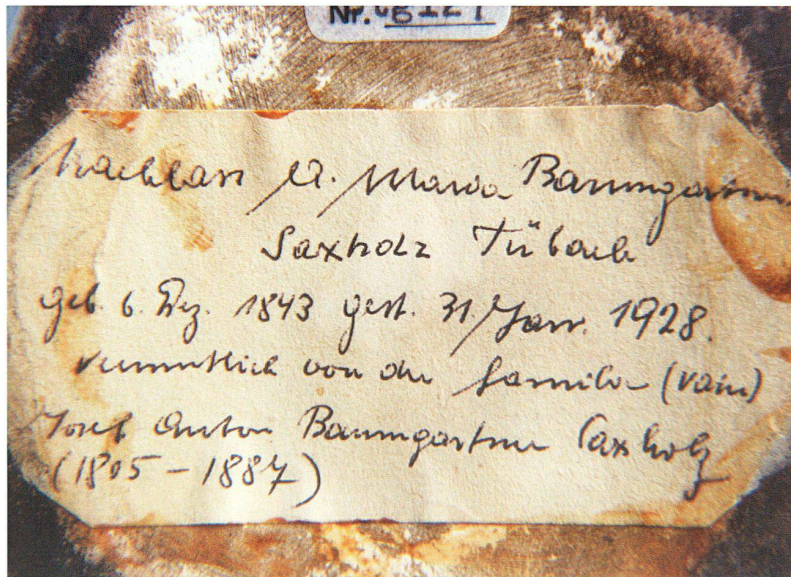 Nr. UB 127
Nachlass A. Maria Baumgartner
Saxholz Tübach
geb. 6. Dez. 1843 gest. 31. Jan. 1928.
vermutlich von der Familie
Josef Anton Baumgartner Saxholz
(1805 - 1887)